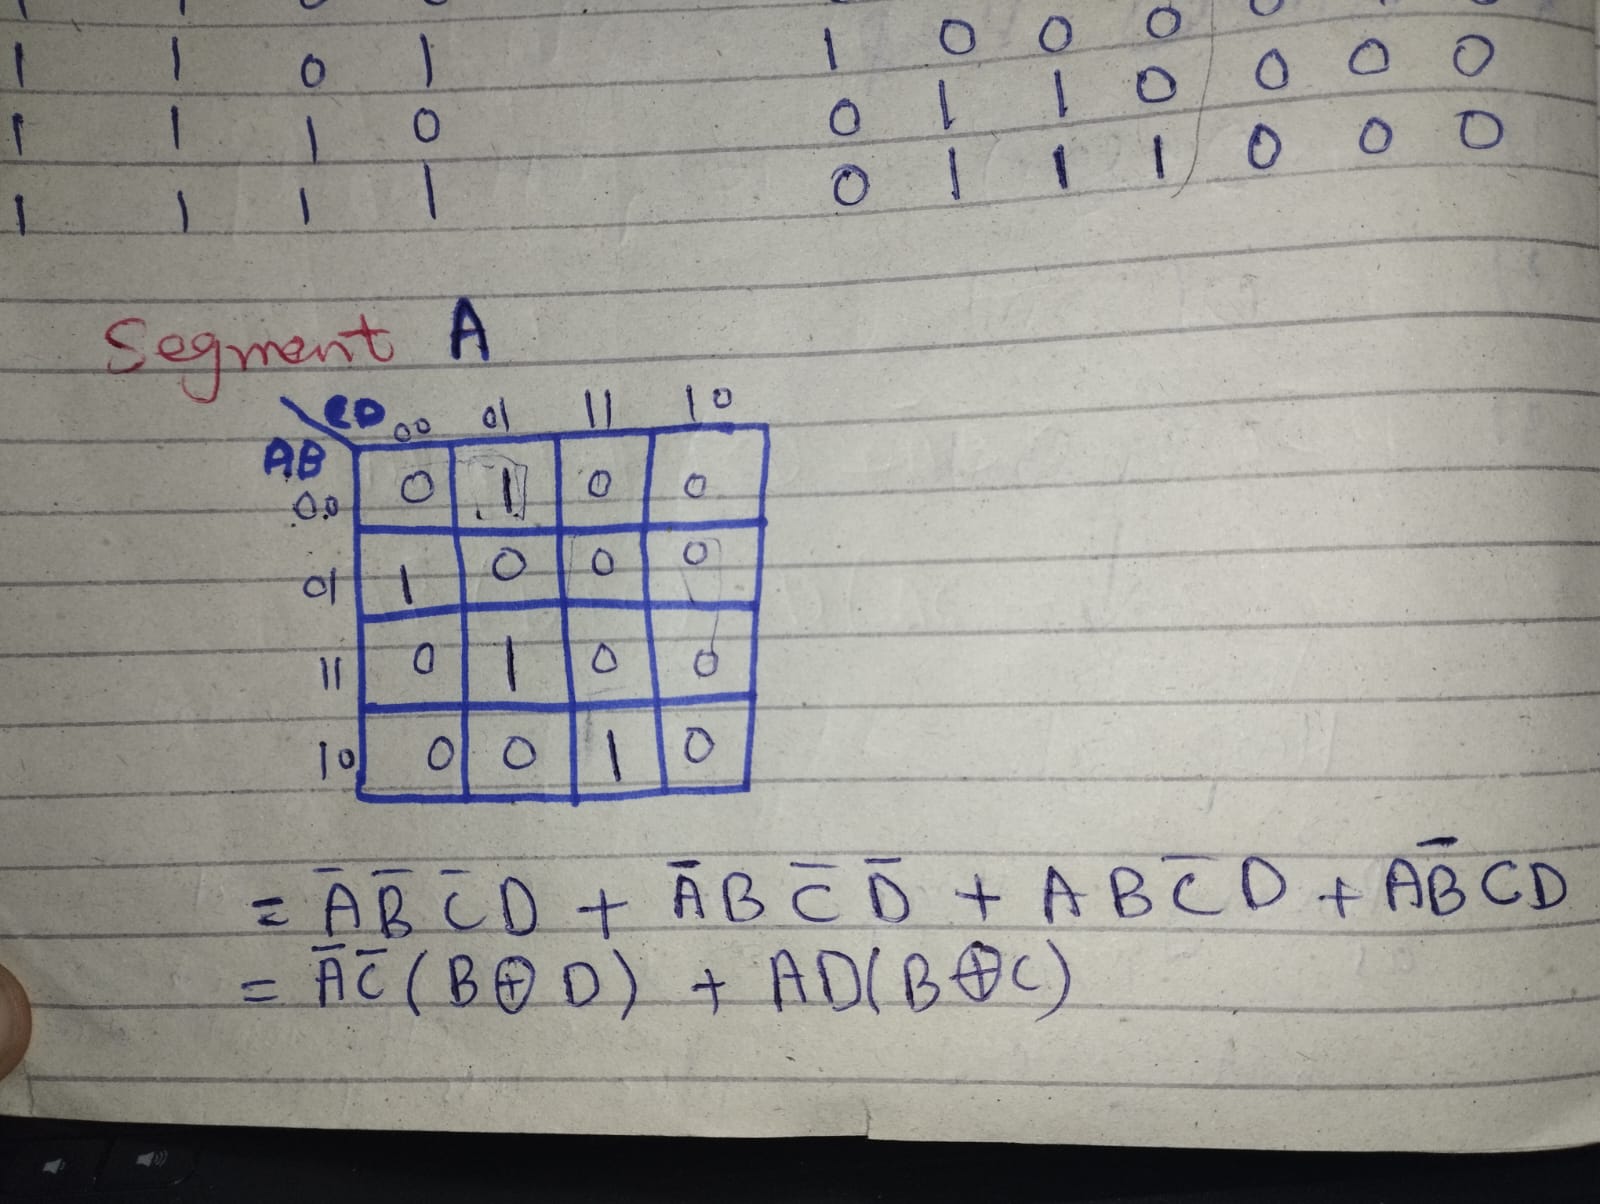 1 1 0 1 1 0 0 0
1 1 1 0 0 1 1 0 0 0 0
1 1 1 1 0 1 1 1 0 0 0
Segment A
CD 00 01 11 10
AB
00 0 1 0 0
01 1 0 0 0
11 0 1 0 0
10 0 0 1 0
= A̅ B̅ C̅ D + A̅ B C̅ D̅ + A B C̅ D + A B̅ C D
= A̅ C̅ ( B ⊕ D ) + AD( B ⊕ C )